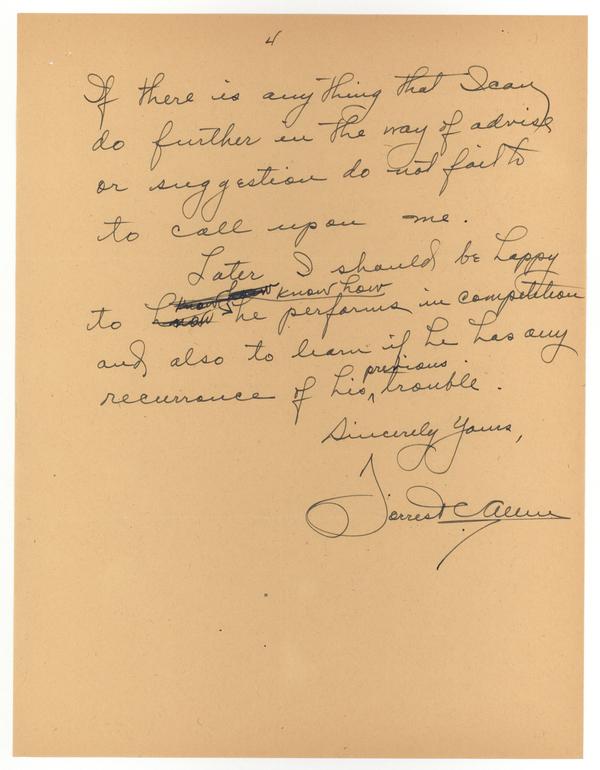 4
If there is any thing that I can
do further in the way of advise
or suggestion do not fail to
to call upon me.
Later I should be happy
know how
to know he performs in competition
and also to learn if he has any
previous
recurrance of his trouble.
Sincerely Yours,
Forrest C Allen